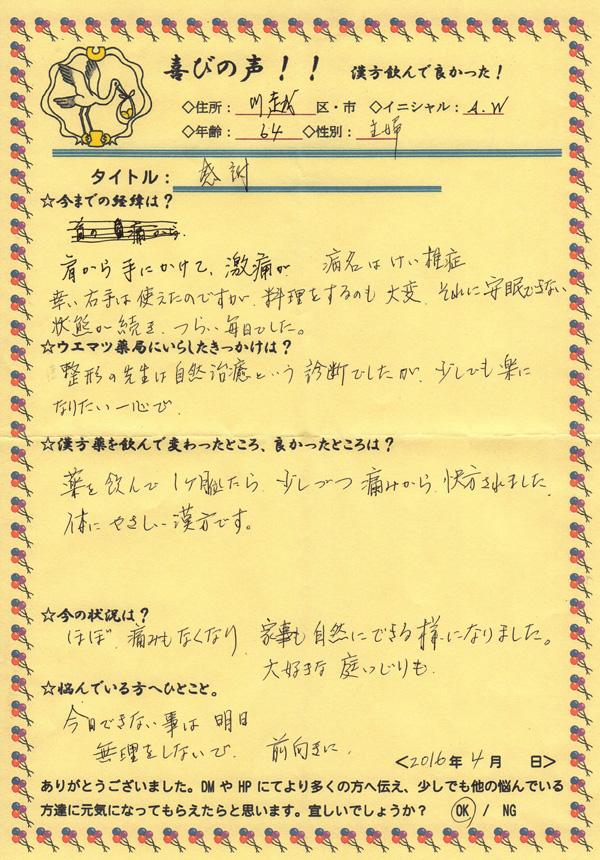 喜びの声！！ 漢方飲んで良かった！
◇住所： 川越 区・市 ◇イニシャル： A.W
◇年齢： 64 ◇性別： 主婦
タイトル： 感謝
☆今までの経緯は？
肩から手にかけて、激痛が 病名はけい椎症
幸い右手は使えたのですが、料理をするのも大変、それに安眠できない
状態が続き、つらい毎日でした。
☆ウエマツ薬局にいらしたきっかけは？
整形の先生は自然治癒という診断でしたが、少しでも楽に
なりたい一心で、
☆漢方薬を飲んで変わったところ、良かったところは？
薬を飲んで1ヶ月したら、少しづつ痛みから、快方されました。
体にやさしい漢方です。
☆今の状況は？
ほぼ、痛みもなくなり、家事も自然にできる様になりました。
大好きな庭いじりも
☆悩んでいる方へひとこと。
今日できない事は明日
無理をしないで、前向きに、
＜2016年4月 日＞
ありがとうございました。DMやHPにてより多くの方へ伝え、少しでも他の悩んでいる
方達に元気になってもらえたらと思います。宜しいでしょうか？ OK / NG